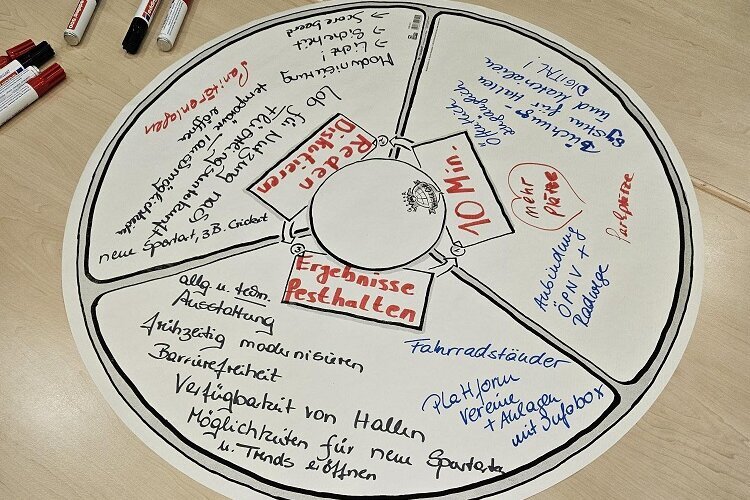 Reden
Diskutieren
10 Min.
Ergebnisse
festhalten
→ Scoreboard
→ Sicherheit
→ Licht!
Modernisierung
Lob
für Nutzung nach
neue Sportart, z.B. Cricket
Buchungs-
System für Hallen
und Materialien
DIGITAL!
Öffentlich
mehr
Plätze
Parkplätze
Anbindung
ÖPNV +
Radwege
allg. u. techn.
Ausstattung
frühzeitig modernisieren
Barrierefreiheit
Verfügbarkeit von Hallen
Möglichkeiten für neue Sportarten
u. Trends eröffnen
Fahrradständer
Plattform
Vereine
+ Anlagen
mit Infobox